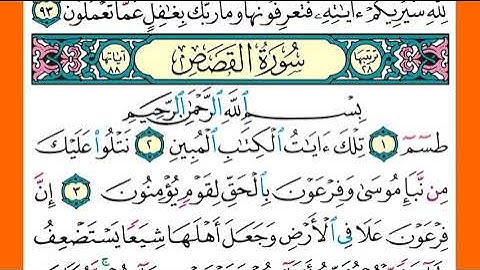 لِلَّهِ سَيُرِيكُمْ ءَايَٰتِهِۦ فَتَعْرِفُونَهَا وَمَا رَبُّكَ بِغَٰفِلٍ عَمَّا تَعْمَلُونَ ٩٣
ترتيبها ٢٨ سُورَةُ القَصَصِ آياتها ٨٨
بِسْمِ ٱللَّهِ ٱلرَّحْمَٰنِ ٱلرَّحِيمِ
طسٓمٓ ١ تِلْكَ ءَايَٰتُ ٱلْكِتَٰبِ ٱلْمُبِينِ ٢ نَتْلُوا۟ عَلَيْكَ
مِن نَّبَإِ مُوسَىٰ وَفِرْعَوْنَ بِٱلْحَقِّ لِقَوْمٍ يُؤْمِنُونَ ٣ إِنَّ
فِرْعَوْنَ عَلَا فِى ٱلْأَرْضِ وَجَعَلَ أَهْلَهَا شِيَعًا يَسْتَضْعِفُ